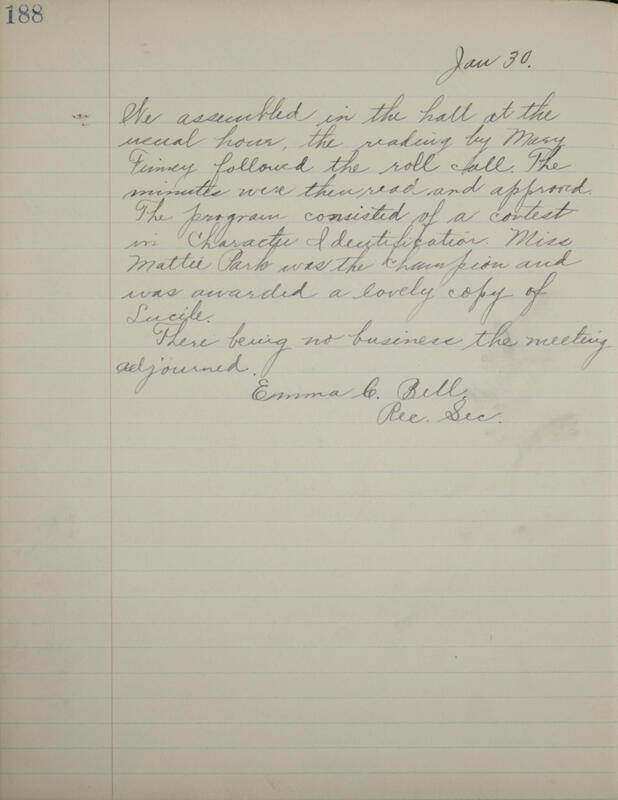 188
Jan 30.
We assembled in the hall at the
usual hour, the reading by Mary
Finney followed the roll call. The
minutes were then read and approved.
The program consisted of a contest
in Character Identification. Miss
Mattie Park was the champion and
was awarded a lovely copy of
Lucile.
There being no business the meeting
adjourned.
Emma C. Bell,
Rec. Sec.